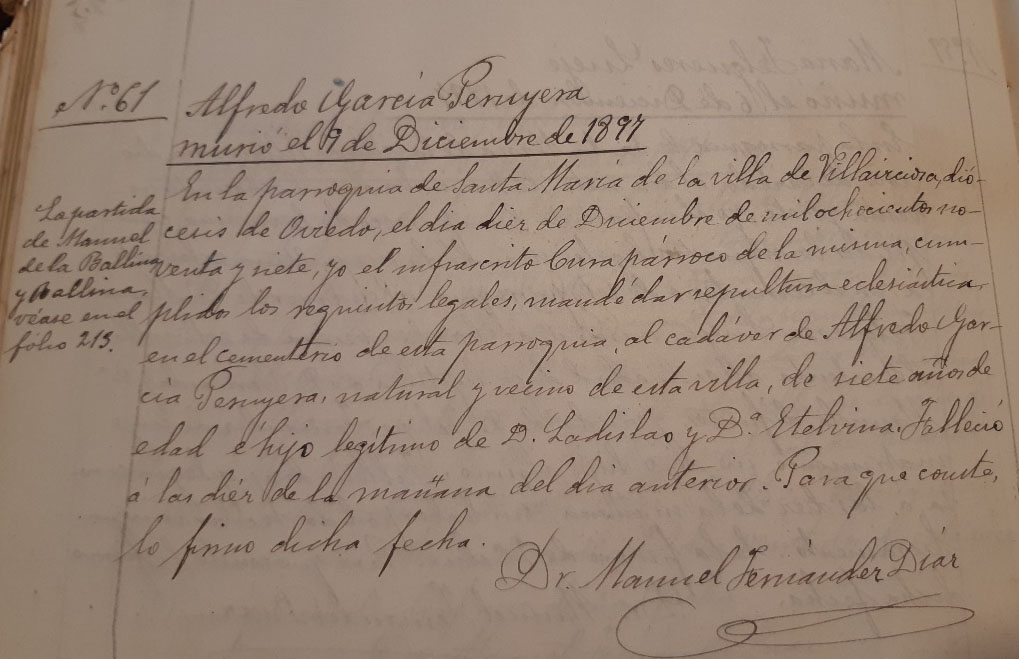 Nº 61
Alfredo García Peruyera
murió el 9 de Diciembre de 1897
La partida
de Manuel
de la Ballina
y Ballina,
véase en el
fólio 213.
En la parroquia de Santa María de la villa de Villaviciosa, dió-
cesis de Oviedo, el dia diez de Diciembre de mil ochocientos no-
venta y siete, yo el infrascrito Cura párroco de la misma, cum-
plidos los requisitos legales, mandé dar sepultura eclesiástica
en el cementerio de esta parroquia, al cadáver de Alfredo Gar-
cía Peruyera, natural y vecino de esta villa, de siete años de
edad é hijo legítimo de D. Ladislao y D.ª Etelvina. Falleció
á las diéz de la mañana del dia anterior. Para que conste,
lo firmo dicha fecha.
Dr. Manuel Fernández Díaz